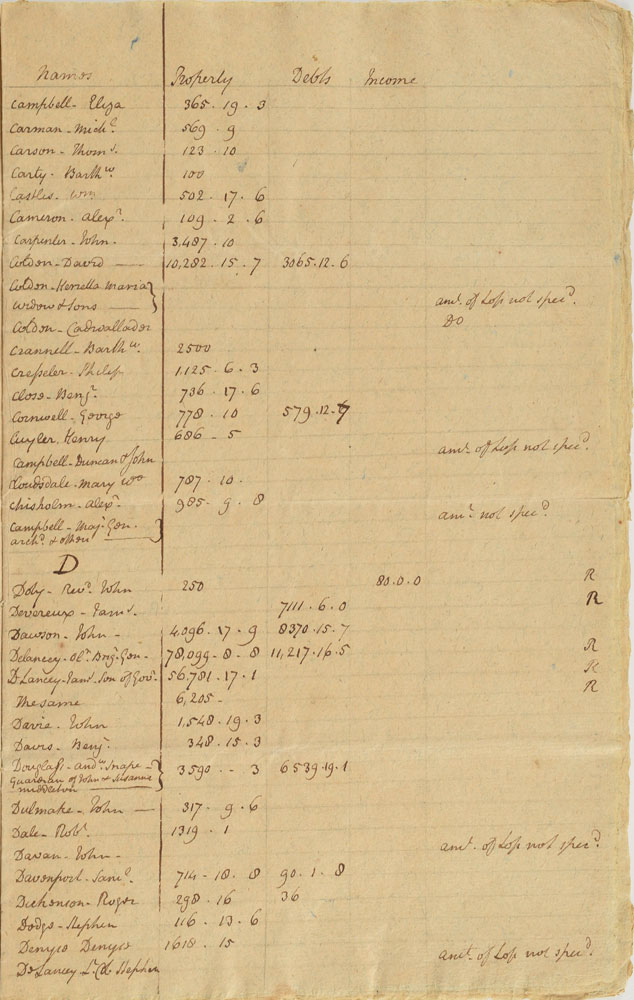 Names Property Debts Income
Campbell - Eliza 365 . 19 . 3
Carman - Mich.l 569 . 9
Carson - Thom.s 123 . 10
Carty - Barth.w 100
Castles - Wm 502 . 17 . 6
Cameron - Alex.r 109 . 2 . 6
Carpenter - John - 3,487 . 10
Colden - David — 10,282 . 15 . 7 3065 . 12 . 6
Colden - Henrietta Maria
Widow & Sons — } am.t of Loss not spec.d
Colden - Cadwallader D.o
Crannell - Barth.w 2500
Cresseler - Philip 1,125 . 6 . 3
Close - Benj.n 736 . 17 . 6
Cornwell - George 778 . 10 579 . 12 . 7
Cuyler, Henry 686 - 5
Campbell - Duncan & John am.t of Loss not spec.d
Mary Wo 787 . 10 .
Chisholm - Alex.r 985 . 9 . 8
Campbell - Maj. Gen -
Arch.d & others — } am.t not spec.d
D
Doty - Rev.d John 250 80 . 0 . 0 R
Devereux - Jam.s 7111 . 6 . 0 R
Dawson - John - 4,096 . 17 . 9 8370 . 15 . 7
Delancey - Ol.r Brig. Gen - 78,099 - 8 - 8 11,217 . 16 . 5 R
D Lancey - Jam.s Son of Gov.r 56,781 . 17 . 1 R
The same 6,205 - R
Davie - John 1,548 . 19 . 3
Davis - Benj. 348 . 15 . 3
Douglass - And.w Snape -
Guardian of John & Susanna
Middleton — } 3590 - - 3 6539 . 19 . 1
Dulmake - John — 317 . 9 . 6
Dale - Rob.t 1319 . 1
Dawan - John - am.t of Loss not spec.d
Davenport - Sam.l 714 . 18 . 8 90 . 1 . 8
Dickenson - Roger 298 . 16 36
Dodge - Stephen 116 . 13 . 6
Denyse Denyse 1618 . 15
De Lancey L.t Col Stephen am.t of Loss not spec.d